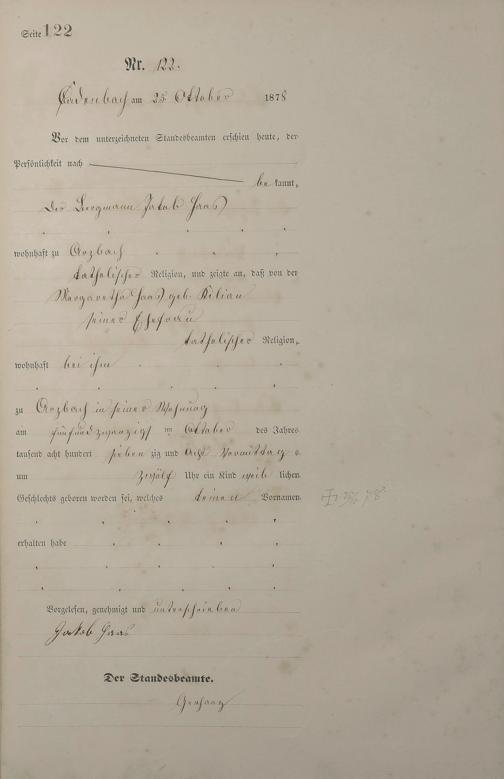 Seite 122
Nr. 122.
Cadenbach am 25 Oktober 1878
Vor dem unterzeichneten Standesbeamten erschien heute, der
Persönlichkeit nach
bekannt,
Der Bergmann Jakob Haas
wohnhaft zu Arzbach
katholischer Religion, und zeigte an, daß von der
Margaretha Haas geb. Kilian
seiner Ehefrau
katholischer Religion,
wohnhaft bei ihm
zu Arzbach in seiner Wohnung
am fünfundzwanzigst en Oktober des Jahres
tausend acht hundert siebenzig und Acht Vormittags
um zwölf Uhr ein Kind weiblichen
Geschlechts geboren worden sei, welches keinen Vornamen
erhalten habe
Vorgelesen, genehmigt und unterschrieben
Jakob Haas
Der Standesbeamte.